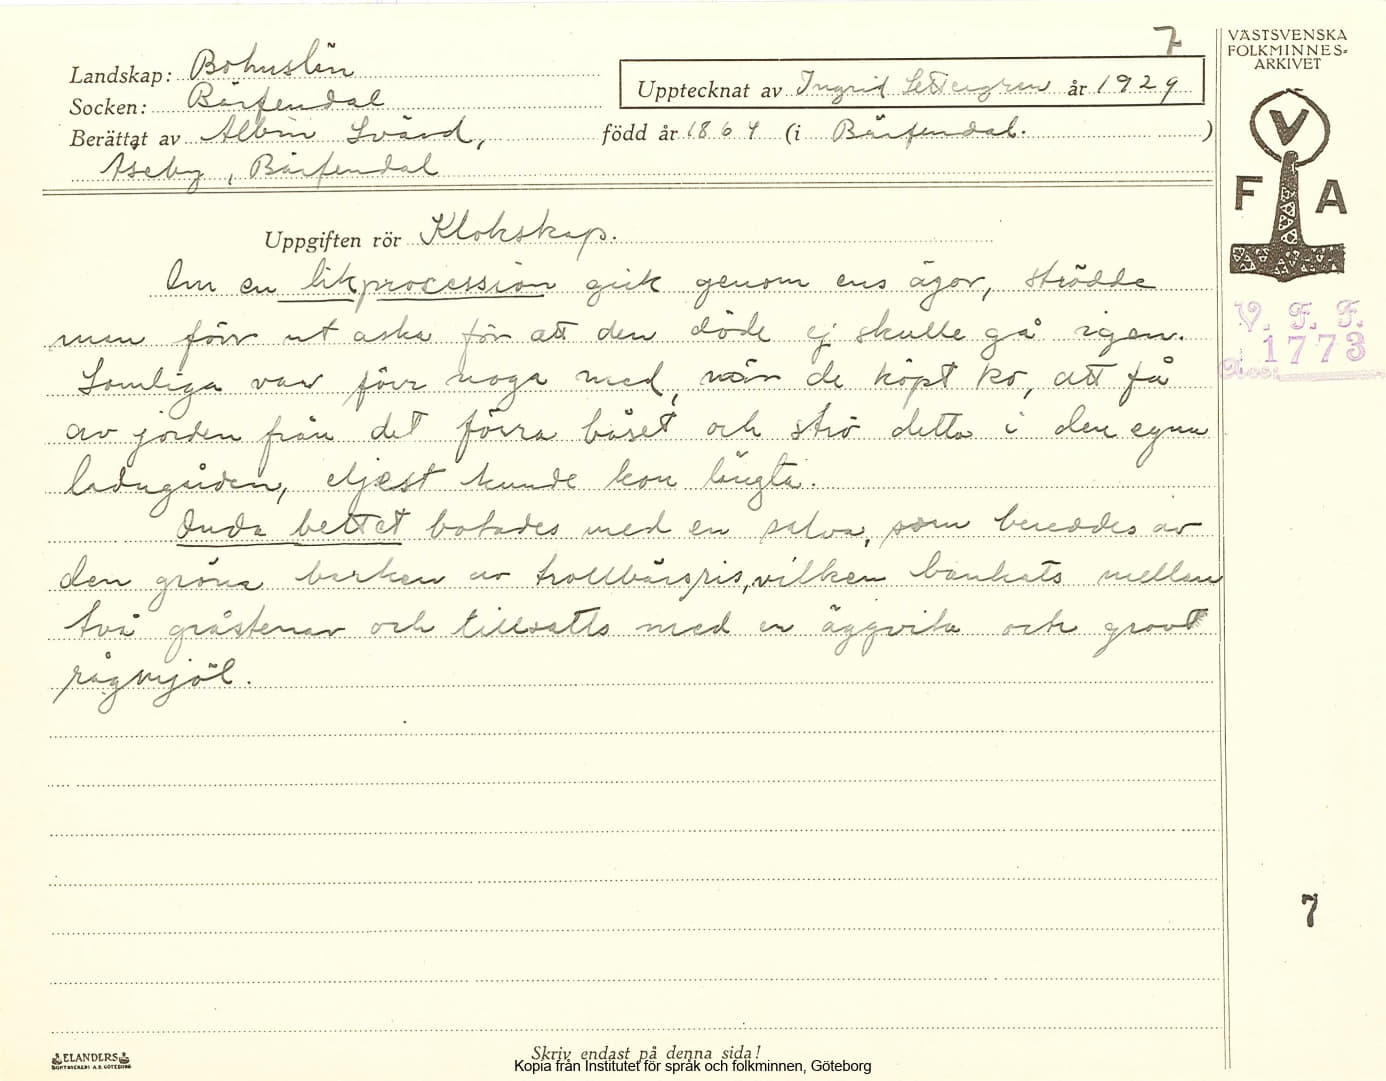 7
VÄSTSVENSKA
FOLKMINNES-
ARKIVET
Landskap: Bohuslän
Socken: Bärfendal
Upptecknat av Ingrid Settergren år 1929
Berättat av Albin Svärd, född år 1864 (i Bärfendal. )
Aseby, Bärfendal
V
F A
Uppgiften rör Klokskap.
Om en likprocession gick genom ens ägor, strödde
man förr ut aska för att den döde ej skulle gå igen.
Somliga var förr noga med, när de köpt ko, att få
av jorden från det förra båset och strö detta i den egna
ladugården, eljest kunde kon längta.
Onda bettet botades med en salva, som bereddes av
den gröna barken av trollbärsris, vilken bankats mellan
två gråstenar och tillsatts med en äggvita och grovt
rågmjöl.
V. F. F.
1773
7
ELANDERS
BOKTRYCKERI A.B. GÖTEBORG
Skriv endast på denna sida!
Kopia från Institutet för språk och folkminnen, Göteborg